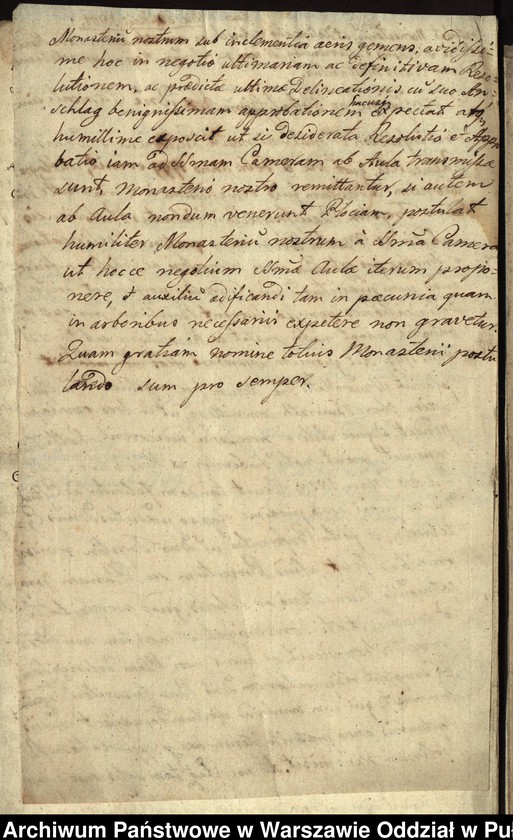 Monasteriũ nostrum sub inclementia aeris gemens, avidissi-
me hoc in negotio ultimariam ac definitivam Reso-
lutionem, ac prædictæ ultimæ Delineationis cũ suo An-
schlag benignissimam approbationem hucusq expectat atq
humillime exposcit ut si desiderata Resolutio & Appro
batio iam ad Illmam Cameram ab Aula transmissæ
sunt, Monasterio nostro remittantur, si autem
ab Aula nondum venerunt Plociam, postulat
humiliter Monasteriũ nostrum à Illmã Camera
ut hocce negotium Illmæ Aulæ iterum propo-
nere, & auxiliũ ædificandi tam in pæcunia quam
in arboribus necessariis expetere non gravetur.
Quam gratiam nomine totius Monasterii postu
lando sum pro semper.
Archiwum Państwowe w Warszawie Oddział w Pu